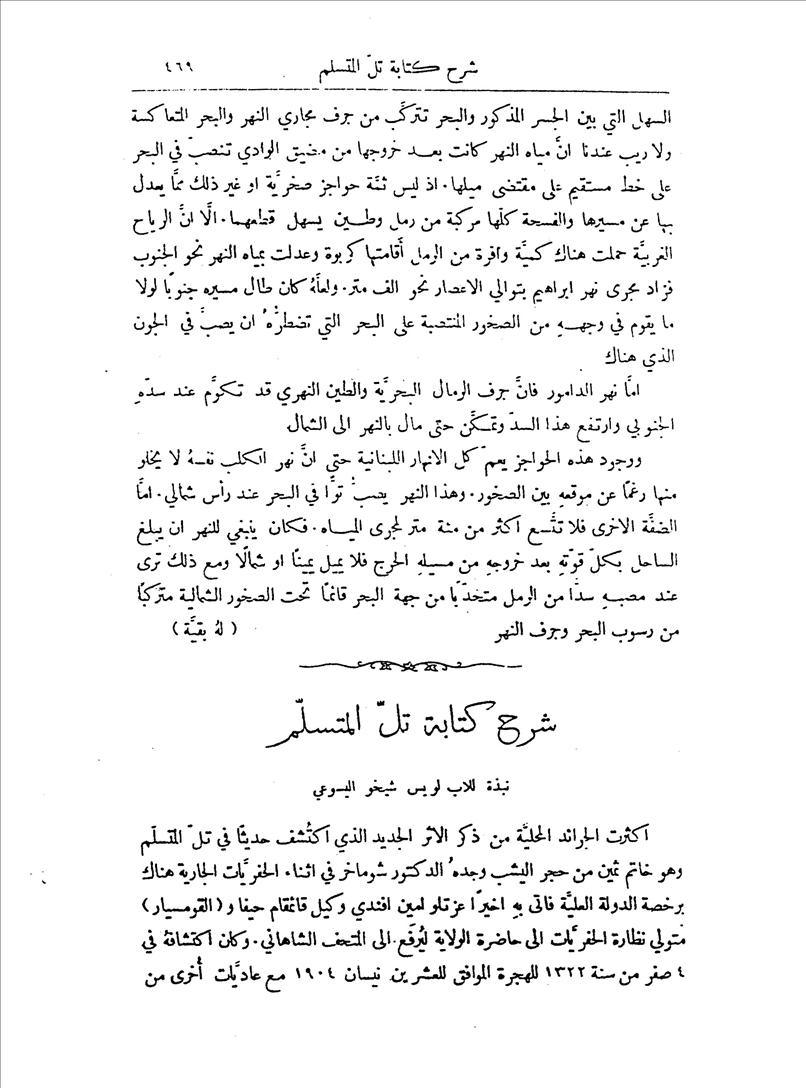 شرح كتابة تلّ المتسلم ٤٦٩
السهل التي بين الجسر المذكور والبحر تتركَّب من جرف مجاري النهر والبحر المتعاكسة
ولا ريب عندنا انَّ مياه النهر كانت بعد خروجها من مضيق الوادي تنصبّ في البحر
على خط مستقيم على مقتضى ميلها. اذ ليس ثمَّة حواجز صخريَّة او غير ذلك ممَّا يعدل
بها عن مسيرها والفسحة كلّها مركبة من رمل وطين يسهل قطعهما. الَّا انَّ الرياح
الغربيَّة حملت هناك كميَّة وافرة من الرمل أقامتها كربوة وعدلت بمياه النهر نحو الجنوب
فزاد مجرى نهر ابراهيم بتوالي الاعصار نحو الف متر. ولعلَّهُ كان طال مسيره جنوبًا لولا
ما يقوم في وجههِ من الصخور المنتصبة على البحر التي تضطرُّهُ ان يصبَّ في الجون
الذي هناك
امَّا نهر الدامور فانَّ جرف الرمال البحريَّة والطين النهري قد تكوَّم عند سدّهِ
الجنوبي وارتفع هذا السدّ وتمكَّن حتى مال بالنهر الى الشمال
ووجود هذه الحواجز يعمّ كل الانهار اللبنانية حتى انَّ نهر الكلب نفسهُ لا يخلو
منها رغمًا عن موقعهِ بين الصخور. وهذا النهر يصبُّ توًّا في البحر عند رأس شمالي. امَّا
الضفَّة الاخرى فلا تتَّسع اكثر من مئة متر لمجرى المياه. فكان ينبغي للنهر ان يبلغ
الساحل بكلّ قوّتهِ بعد خروجهِ من مسيلهِ الحرج فلا يميل يمينًا او شمالًا ومع ذلك ترى
عند مصبهِ سدًّا من الرمل متحدّبًا من جهة البحر قائمًا تحت الصخور الشمالية متركبًا
من رسوب البحر وجرف النهر (لهُ بقيَّة)
شرح كتابة تلّ المتسلّم
نبذة للاب لويس شيخو اليسوعي
اكثرت الجرائد المحليَّة من ذكر الاثر الجديد الذي اكتُشف حديثًا في تلّ المتسلّم
وهو خاتم ثمين من حجر اليشب وجدهُ الدكتور شوماخر في اثناء الحفريَّات الجارية هناك
برخصة الدولة العليَّة فاتى بهِ اخيرًا عزتلو امين افندي وكيل قائمقام حيفا و(القومسيار)
متولي نظارة الحفريَّات الى حاضرة الولاية ليُرفَع الى المتحف الشاهاني. وكان اكتشافهُ في
٤ صفر من سنة ١٣٢٢ للهجرة الموافق للعشرين نيسان ١٩٠٤ مع عاديَّات أُخرى من